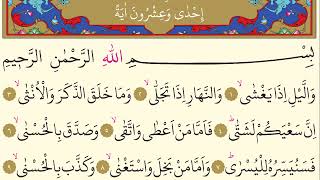 اِحْدٰى وَعِشْرُونَ اٰيَةً
بِسْمِ اللهِ الرَّحْمٰنِ الرَّحِيمِ
وَالَّيْلِ اِذَا يَغْشٰىۙ ﴿١﴾ وَالنَّهَارِ اِذَا تَجَلّٰىۙ ﴿٢﴾ وَمَا خَلَقَ الذَّكَرَ وَالْاُنْثٰىۙ ﴿٣﴾
اِنَّ سَعْيَكُمْ لَشَتّٰىۜ ﴿٤﴾ فَاَمَّا مَنْ اَعْطٰى وَاتَّقٰىۙ ﴿٥﴾ وَصَدَّقَ بِالْحُسْنٰىۙ ﴿٦﴾
فَسَنُيَسِّرُهُ لِلْيُسْرٰىۜ ﴿٧﴾ وَاَمَّا مَنْ بَخِلَ وَاسْتَغْنٰىۙ ﴿٨﴾ وَكَذَّبَ بِالْحُسْنٰىۙ ﴿٩﴾